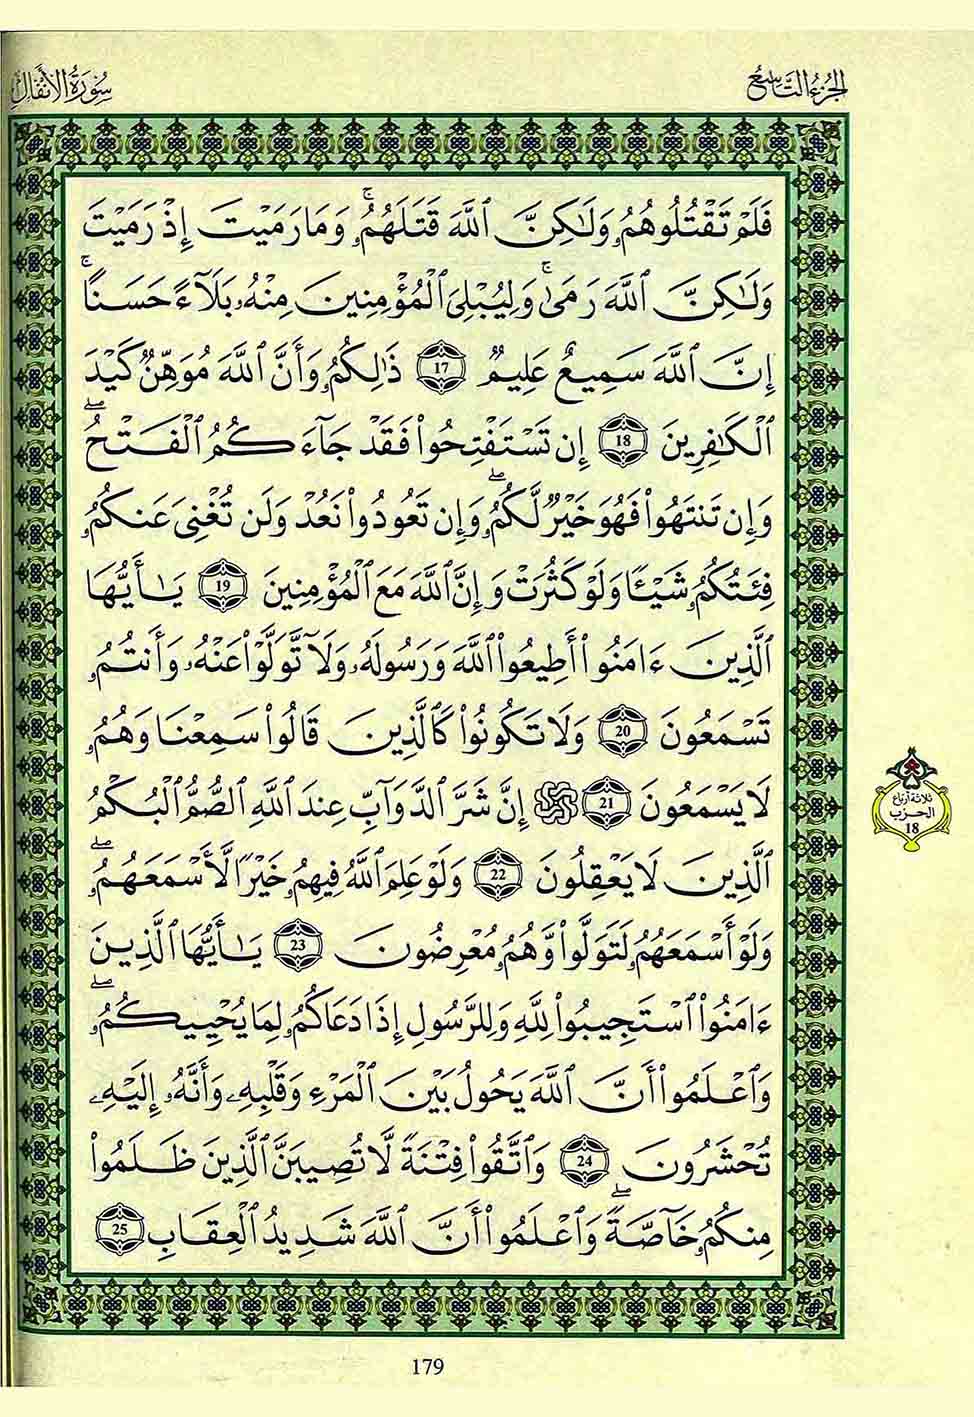 الجزء التاسع
سورة الأنفال
فَلَمْ تَقْتُلُوهُمُۥ وَلَٰكِنَّ ٱللَّهَ قَتَلَهُمُۥۚ وَمَا رَمَيْتَ إِذْ رَمَيْتَ
وَلَٰكِنَّ ٱللَّهَ رَمَىٰۚ وَلِيُبْلِيَ ٱلْمُؤْمِنِينَ مِنْهُۥ بَلَآءً حَسَنًاۚ
إِنَّ ٱللَّهَ سَمِيعٌ عَلِيمٌ 17 ذَٰلِكُمُۥ وَأَنَّ ٱللَّهَ مُوَهِّنٌ كَيْدَ
ٱلْكَٰفِرِينَ 18 إِن تَسْتَفْتِحُوا۟ فَقَدْ جَآءَكُمُ ٱلْفَتْحُۖ
وَإِن تَنتَهُوا۟ فَهُوَ خَيْرٌ لَّكُمُۥۖ وَإِن تَعُودُوا۟ نَعُدْ وَلَن تُغْنِيَ عَنكُمُۥ
فِئَتُكُمُۥ شَيْـًٔا وَلَوْ كَثُرَتْ وَإِنَّ ٱللَّهَ مَعَ ٱلْمُؤْمِنِينَ 19 يَٰٓأَيُّهَا
ٱلَّذِينَ ءَامَنُوا۟ أَطِيعُوا۟ ٱللَّهَ وَرَسُولَهُۥ وَلَآ تَّوَلَّوْا۟ عَنْهُۥ وَأَنتُمُۥ
تَسْمَعُونَ 20 وَلَا تَكُونُوا۟ كَٱلَّذِينَ قَالُوا۟ سَمِعْنَا وَهُمُۥ
لَا يَسْمَعُونَ 21 ۞ إِنَّ شَرَّ ٱلدَّوَآبِّ عِندَ ٱللَّهِ ٱلصُّمُّ ٱلْبُكْمُ
ثلاثة أرباع
الحزب
18
ٱلَّذِينَ لَا يَعْقِلُونَ 22 وَلَوْ عَلِمَ ٱللَّهُ فِيهِمُۥ خَيْرًا لَّأَسْمَعَهُمُۥۖ
وَلَوْ أَسْمَعَهُمُۥ لَتَوَلَّوا۟ وَّهُمُۥ مُعْرِضُونَ 23 يَٰٓأَيُّهَا ٱلَّذِينَ
ءَامَنُوا۟ ٱسْتَجِيبُوا۟ لِلَّهِ وَلِلرَّسُولِ إِذَا دَعَاكُمُۥ لِمَا يُحْيِيكُمُۥۖ
وَٱعْلَمُوا۟ أَنَّ ٱللَّهَ يَحُولُ بَيْنَ ٱلْمَرْءِ وَقَلْبِهِۦ وَأَنَّهُۥ إِلَيْهِۦ
تُحْشَرُونَ 24 وَٱتَّقُوا۟ فِتْنَةً لَّا تُصِيبَنَّ ٱلَّذِينَ ظَلَمُوا۟
مِنكُمُۥ خَآصَّةًۖ وَٱعْلَمُوا۟ أَنَّ ٱللَّهَ شَدِيدُ ٱلْعِقَابِ 25
179